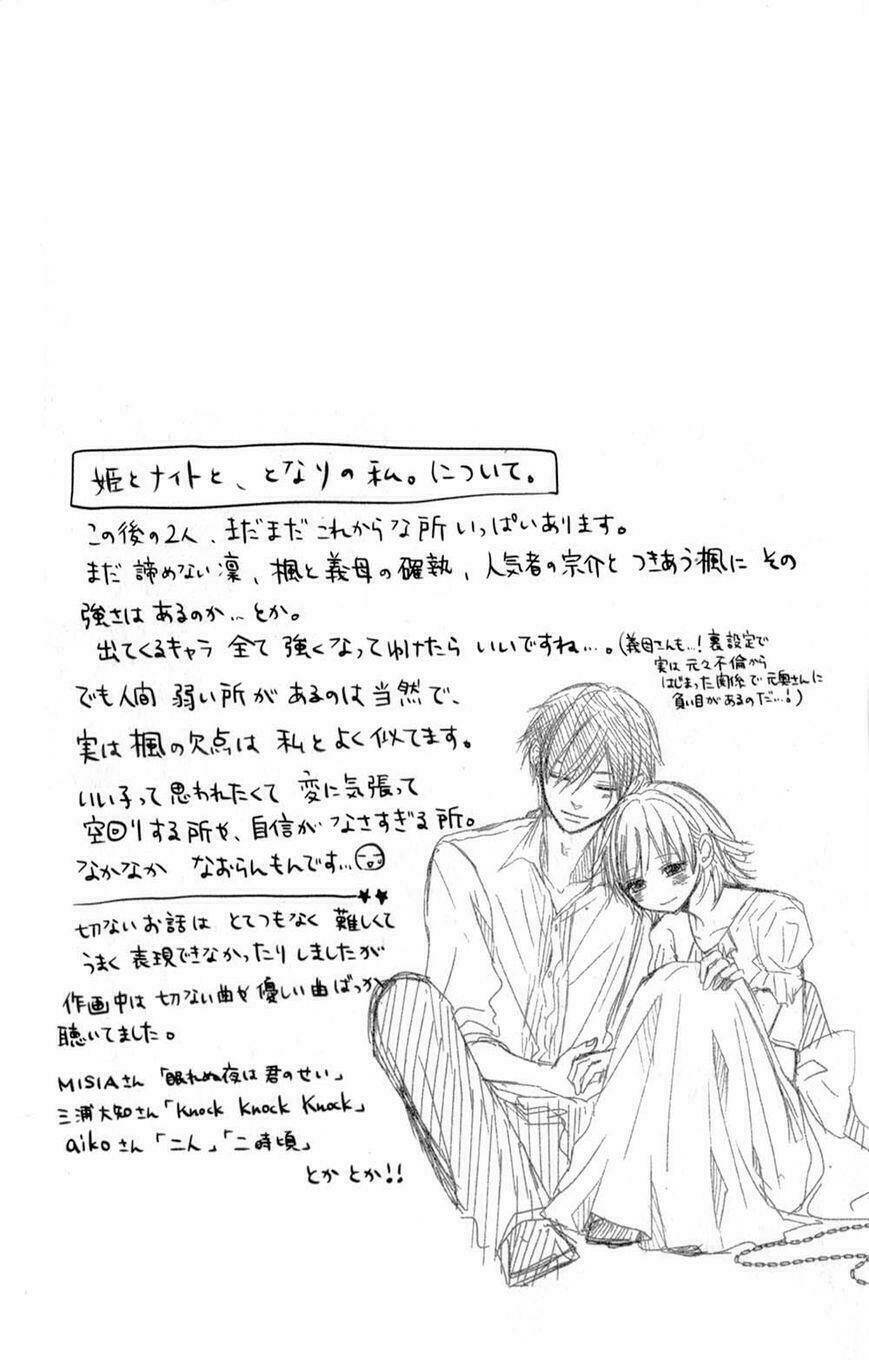 姫とナイトと、となりの私。について。
この後の2人、まだまだこれからな所いっぱいあります。
まだ諦めない凛、楓と義母の確執、人気者の宗介とつきあう楓にその
強さはあるのか…とか。
出てくるキャラ全て強くなってゆけたらいいですね…。(義母さんも…!裏設定で
実は元々不倫から
はじまった関係で元奥さんに
負い目があるのだ…!)
でも人間弱い所があるのは当然で、
実は楓の欠点は私とよく似てます。
いい子って思われたくて変に気張って
空回りする所や、自信がなさすぎる所。
なかなかなおらんもんです…
切ないお話はとてつもなく難しくて
うまく表現できなかったりしましたが
作画中は切ない曲や優しい曲ばっか
聴いてました。
MISIAさん「眠れぬ夜は君のせい」
三浦大知さん「Knock Knock Knock」
aikoさん「二人」「二時頃」
とかとか!!